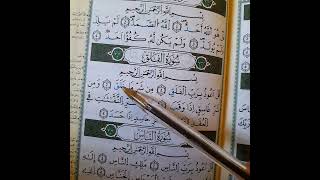 بِسْمِ اللَّهِ الرَّحْمَٰنِ الرَّحِيمِ
قُلْ هُوَ اللَّهُ أَحَدٌ ١ اللَّهُ الصَّمَدُ ٢ لَمْ يَلِدْ
وَلَمْ يُولَدْ ٣ وَلَمْ يَكُن لَّهُ كُفُوًا أَحَدٌ ٤
سُورَةُ الْفَلَقِ
بِسْمِ اللَّهِ الرَّحْمَٰنِ الرَّحِيمِ
قُلْ أَعُوذُ بِرَبِّ الْفَلَقِ ١ مِن شَرِّ مَا خَلَقَ ٢ وَمِن
شَرِّ غَاسِقٍ إِذَا وَقَبَ ٣ النَّفَّٰثَٰتِ فِي
حَاسِدٍ إِذَا حَسَدَ ٥
سُورَةُ النَّاسِ
بِسْمِ اللَّهِ الرَّحْمَٰنِ الرَّحِيمِ
قُلْ أَعُوذُ بِرَبِّ النَّاسِ ١ مَلِكِ النَّاسِ ٢ إِلَٰهِ